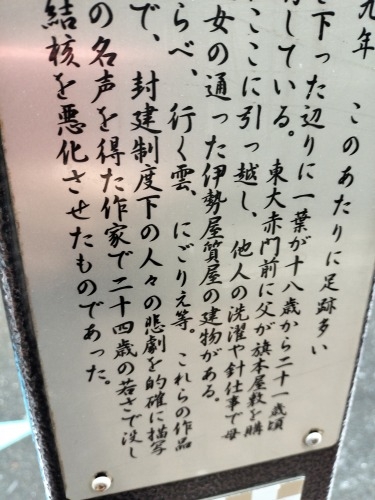 九年 このあたりに足跡多い
を下った辺りに一葉が十八歳から二十一歳頃
している。東大赤門前に父が旗本屋敷を購
ここに引っ越し、他人の洗濯や針仕事で母
女の通った伊勢屋質屋の建物がある。
らべ、行く雲、にごりえ等。これらの作品
で、封建制度下の人々の悲劇を的確に描写
の名声を得た作家で二十四歳の若さで没し
結核を悪化させたものであった。